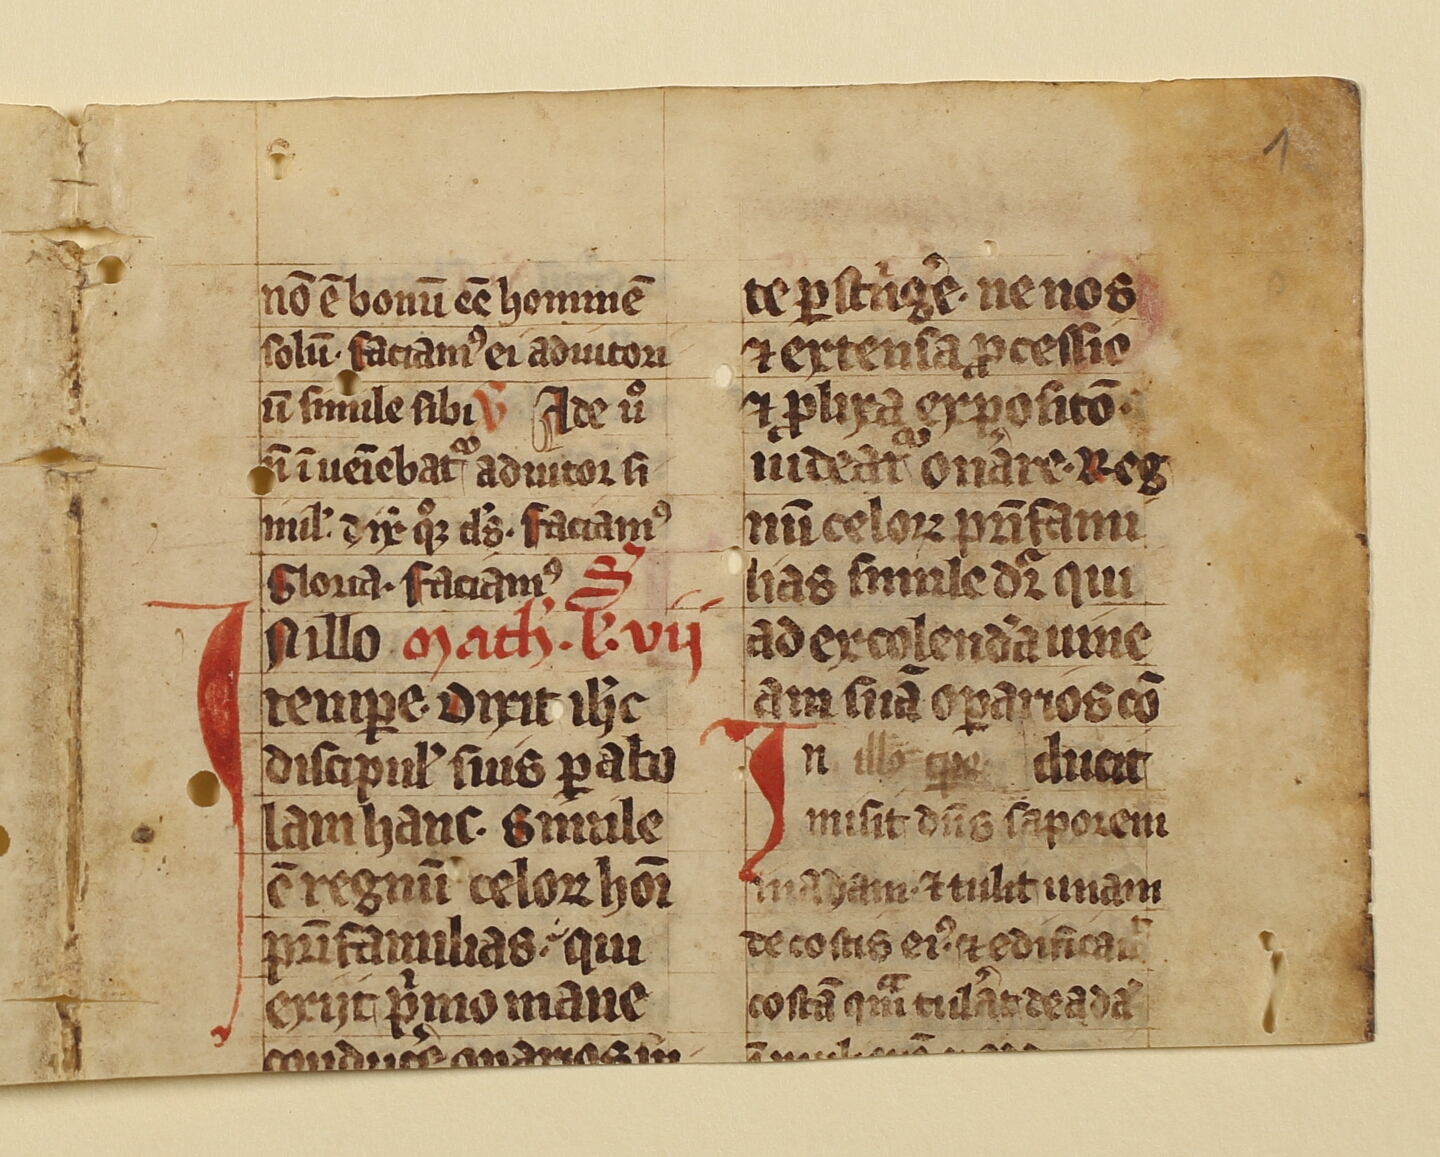 1
nō ē bonū eē hominē
solū. faciam⁹ ei adiutori
ū simile sibi V Ade ů
n̄ īueīebat᷑ adiutor si
mil̕. dix̄ q̊ꝫ dꝰs. faciam⁹
Gloria. faciam⁹ S
Nillo math̕. k. vij
tempe. Dixit ih̄c
discipul̕ suis ꝑabo
lam hanc. Simile
ē regnū celoꝝ hōi
pr̄ifamilias. qui
exijt p̄mo mane
conduc̄e oparios in
te ꝑstrīḡe. ne nos
⁊ extensa ꝓcessio
⁊ ꝓlixa exposito.
uideat᷑ on̄are. Reg
nū celoꝝ pr̄ifami
lias simile dr̄ qui
ad excolendā uine
am suā oꝑarios cō
In illo tpe ducit
misit dn̄s saporem
in adam. ⁊ tulit unam
de costis ei⁹. ⁊ edificau̕
costā quā tul̄at de adā